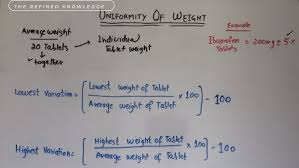 THE REFINED KNOWLEDGE
UNIFORMITY OF WEIGHT
Average weight
20 Tablets
together
Individual
Tablet weight
Example
Ibuprofen = 200mg ± 5%
Tablets
Lowest Variation = [ Lowest weight of Tablet / Average weight of Tablet × 100 ] - 100
Highest Variation = [ Highest weight of Tablet / Average weight of Tablet × 100 ] - 100